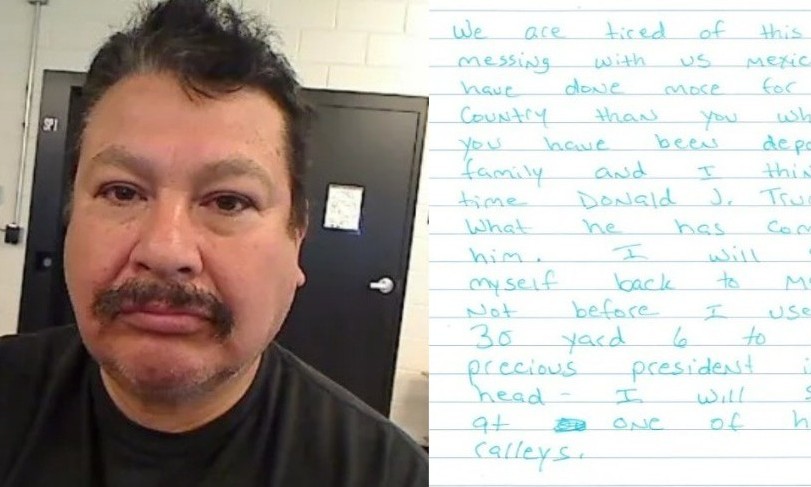 SPI
We are tired of this
messing with us Mexic
have done more for
Country than you wh
you have been depo
family and I thin
time Donald J. Tru
What he has com
him. I will
myself back to M
Not before I use
30 yard 6 to
precious president i
head - I will S
at one of h
ralleys.